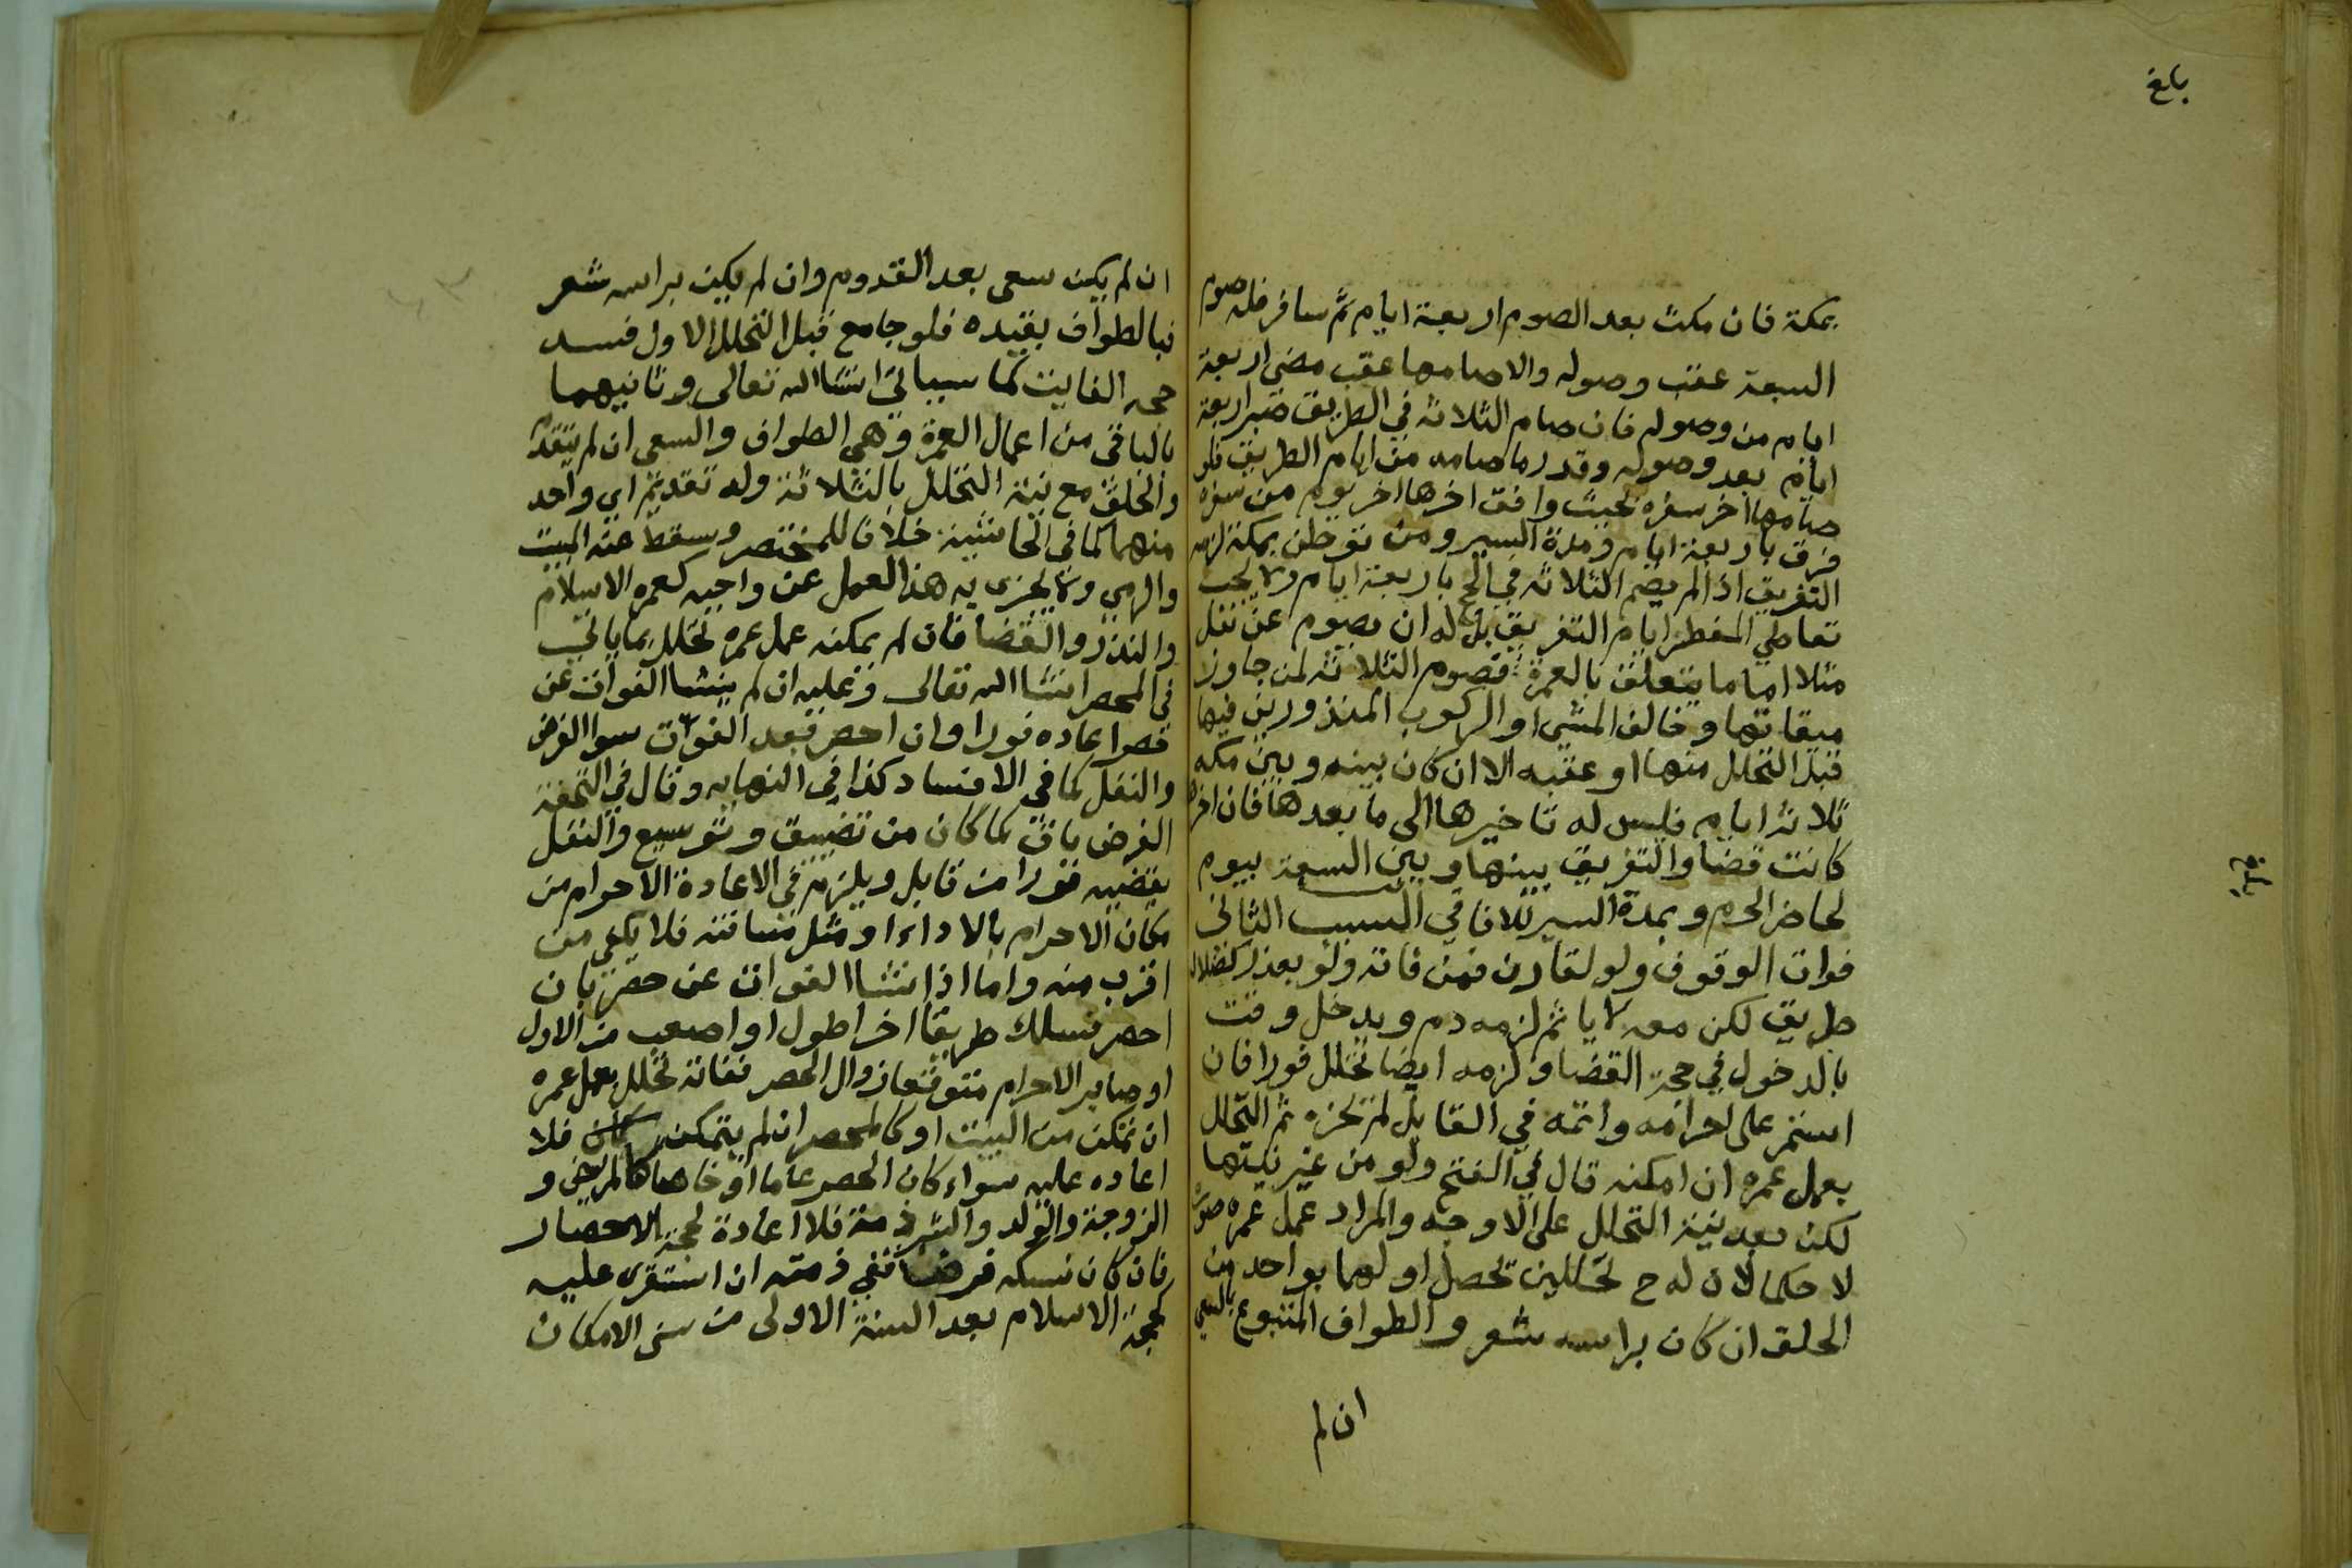 بلغ
بمكة فان مكث بعد الصوم اربعة ايام ثم سافر فله صوم
السبعة عقب وصوله والا صامها عقب مضي اربعة
ايام من وصوله فان صام الثلاثة في الطريق صبر اربعة
ايام بعد وصوله وقدر ما صامه من ايام الطريق فلو
صامها اخر سفره بحيث وافق اخرها اخر يوم من سفره
فرق باربعة ايام ومدة السير ومن توطن بمكة لزمه
التفريق اذا لم يصم الثلاثة في الحج باربعة ايام ولا يجب
تعاطي المفطر ايام التفريق بل له ان يصوم عن نفل
مثلا اما ما يتعلق بالعمرة فصوم الثلاثة لمن جاوز
ميقاتها وخالف المشي او الركوب المنذورين فيها
قبل التحلل منها او عقبه الا ان كان بينه وبين مكه
ثلاثة ايام فليس له تاخيرها الى ما بعدها فان اخرها
كانت قضا والتفريق بينها وبين السبعة بيوم
لحاضر الحرم وبمدة السير للافاقي السبب الثاني
فوات الوقوف ولو لقارن فمن فاته ولو بعذر كضلال
طريق لكن معه لا ياثم لزمه دم ويدخل وقته
بالدخول في حجة القضا ولزمه ايضا تحلل فورا فان
استمر على احرامه واتمه في القابل لم تجزه ثم التحلل
بعمل عمره ان امكنه قال في الفتح ولو من غير نيتها
لكن بعد نية التحلل على الاوجه والمراد عمل عمره صورة
لا حكما لان له ح تحللين تحصل اولهما بواحد من
الحلق ان كان براسه شعر والطواف المتبوع بالسعي
ان لم
بلغ
ان لم يكن سعى بعد القدوم وان لم يكن براسه شعر
فبالطواف بقيده فلو جامع قبل التحلل الاول فسد
حجه الفايت كما سيياتي انشا الله تعالى وثانيهما
بالباقي من اعمال العمرة وهي الطواف والسعي ان لم يتقدم
والحلق مع نية التحلل بالثلاثة وله تقديم اي واحد
منهما كما في الحاشية خلافا للمختصر وسقط عنه المبيت
والرمي ولا يجزي به هذا العمل عن واجبه كعمره الاسلام
والنذر والقضا فان لم يمكنه عمل عمره تحلل بما ياتي
في المحصر انشا الله تعالى وعليه ان لم ينشا الفوات عن
حصر اعاده فورا وان احصر بعد الفوات سوا الفرض
والنفل كما في الافساد كذا في النهايه وقال في التحفة
الفرض باق كما كان من تضييق وتوسيع والنفل
يقضيه فورا من قابل ويلزمه في الاعادة الاحرام من
مكان الاحرام بالاداء او مثل مسافته فلا يكفي من
اقرب منه واما اذا نشا الفوات عن حصر بان
احصر فسلك طريقا اخر اطول او اصعب من الاول
او صابر الاحرام متوقعا زوال الحصر ففاته تحلل بعمل عمره
ان تمكن من البيت او كالمحصر ان لم يتمكن فلا
اعاده عليه سواء كان الحصر عاما او خاصا كالمريض و
الزوجة والولد والشرذمة فلا اعادة لحجة الاحصار
فان كان نسكه فرضا ففي ذمته ان استقر عليه
كحجة الاسلام بعد السنة الاولى من سني الامكان